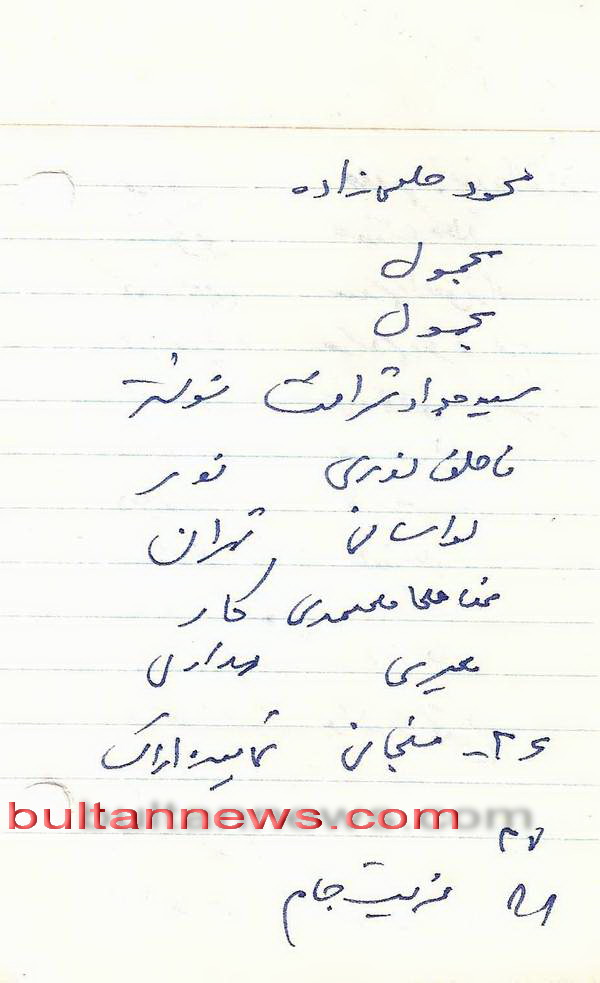 محمود حلمی‌زاده
مجهول
مجهول
سید جواد شرافت شوشتر
ناطق نوری نور
لواسانی تهران
محمدی کار
معیری
۲۶- منجانی نماینده اراک
bultannews.com
۲۷
۲۸ تربت جام